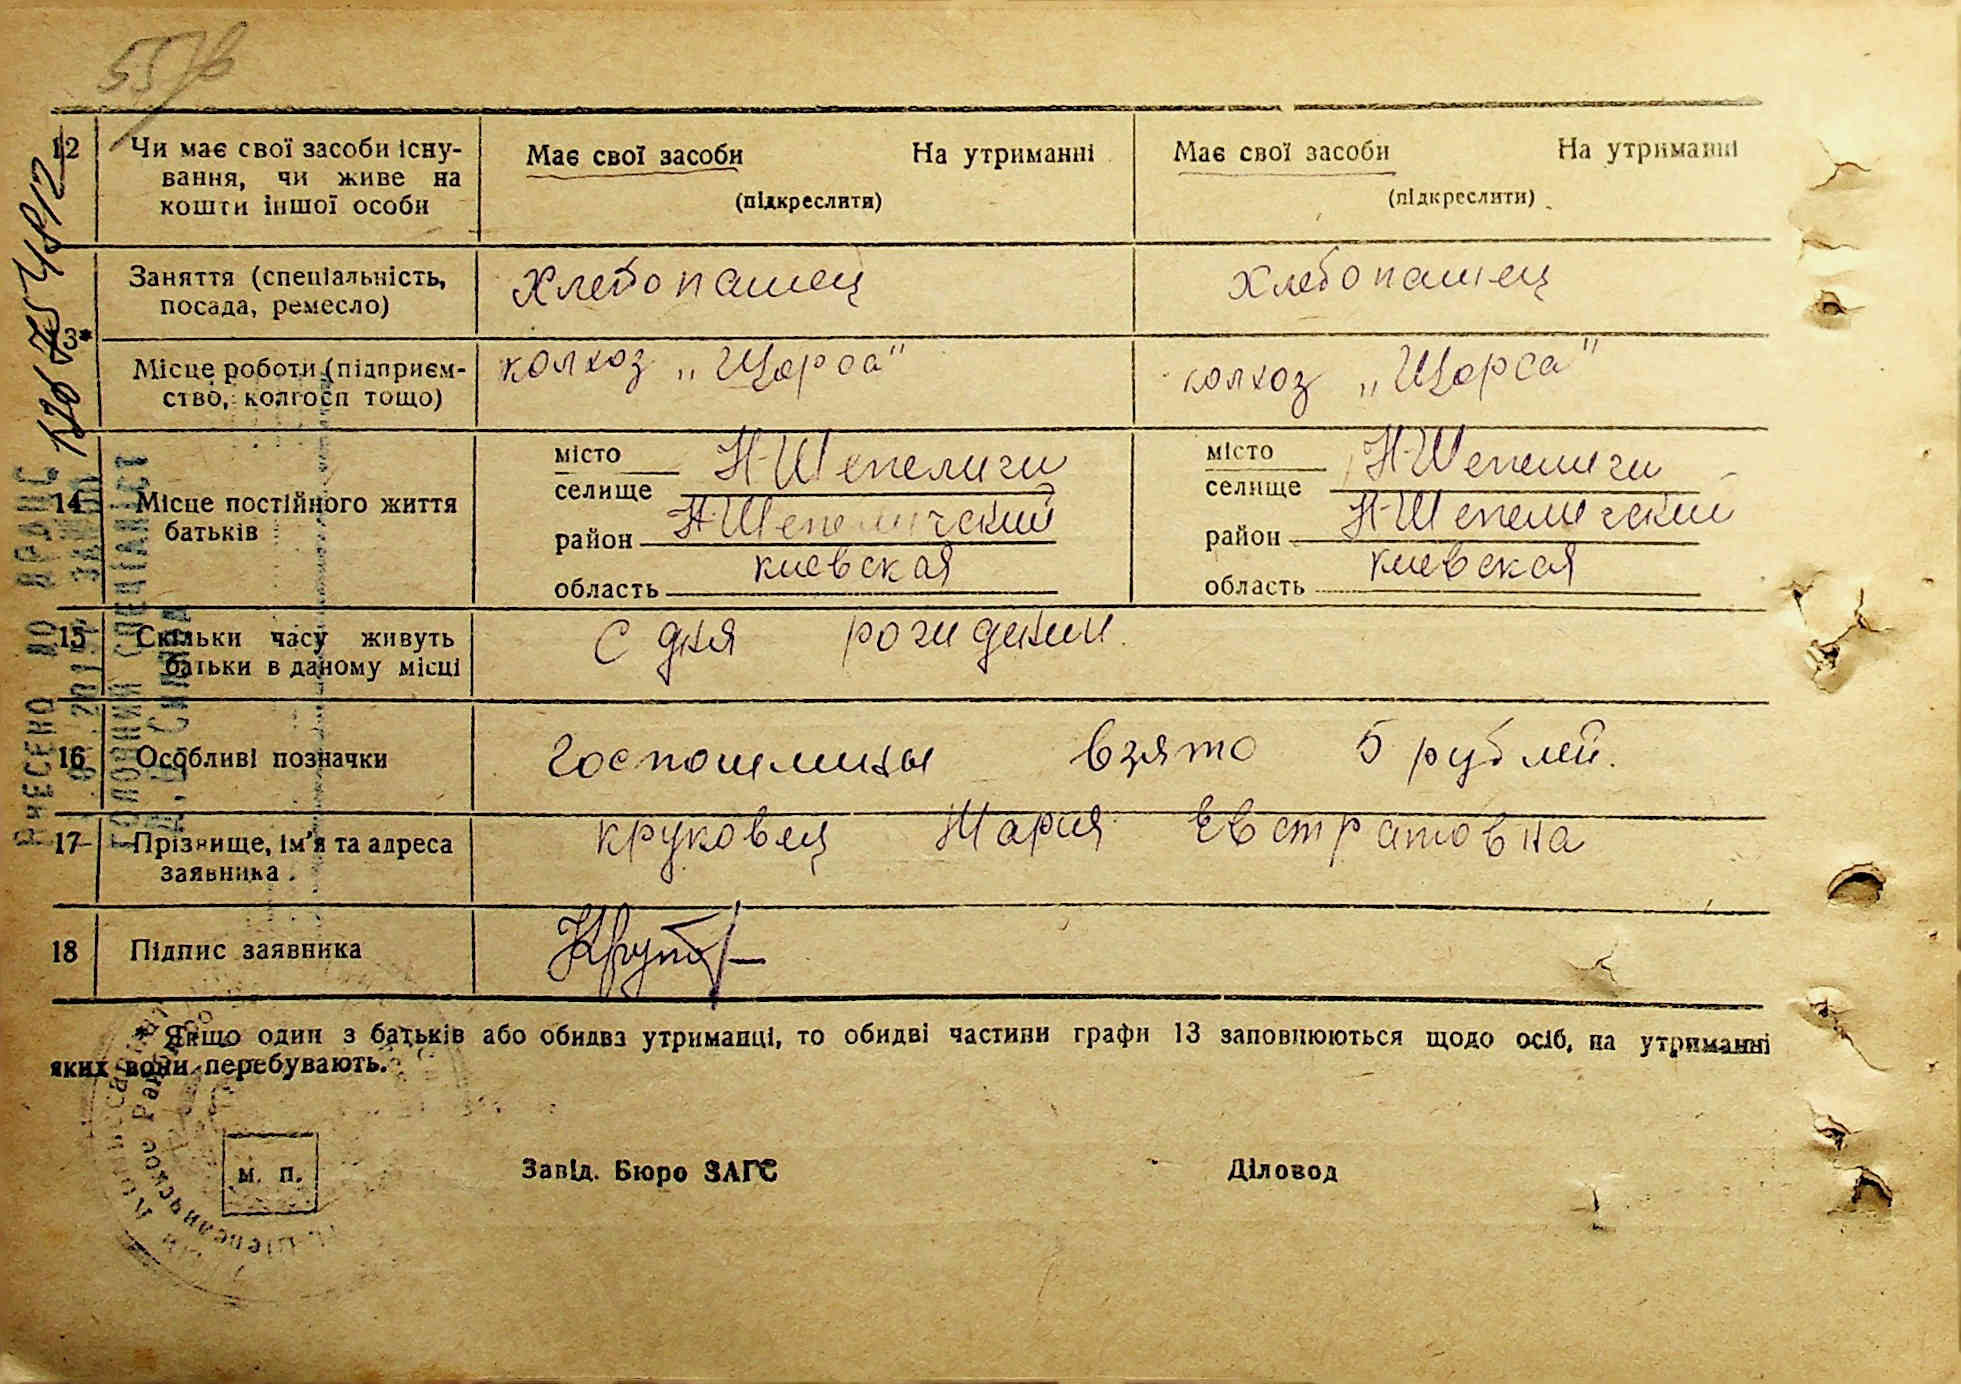 12 Чи має свої засоби існу- Має свої засоби На утриманні Має свої засоби На утриманні
вання, чи живе на
кошти іншої особи (підкреслити) (підкреслити)
Заняття (спеціальність, Хлебопашец Хлебопашец
посада, ремесло)
13*
Місце роботи (підприєм- колхоз „Щорса" колхоз „Щорса"
ство, колгосп тощо)
місто Н-Шепеличи місто Н-Шепеличи
14 Місце постійного життя селище селище
батьків район Н-Шепеличский район Н-Шепеличский
область киевская область киевская
15 Скільки часу живуть С дня рождения
батьки в даному місці
16 Особливі позначки Госпошлины взято 5 рублей.
17 Прізвище, ім'я та адреса Круковец Мария Евстратовна
заявника
18 Підпис заявника
* Якщо один з батьків або обидва утриманці, то обидві частини графи 13 заповнюються щодо осіб, на утриманні
яких вони перебувають.
м. п. Завід. Бюро ЗАГС Діловод
ВНЕСЕНО ДО ДРАЦС
ГОЛОВНИЙ СПЕЦІАЛІСТ